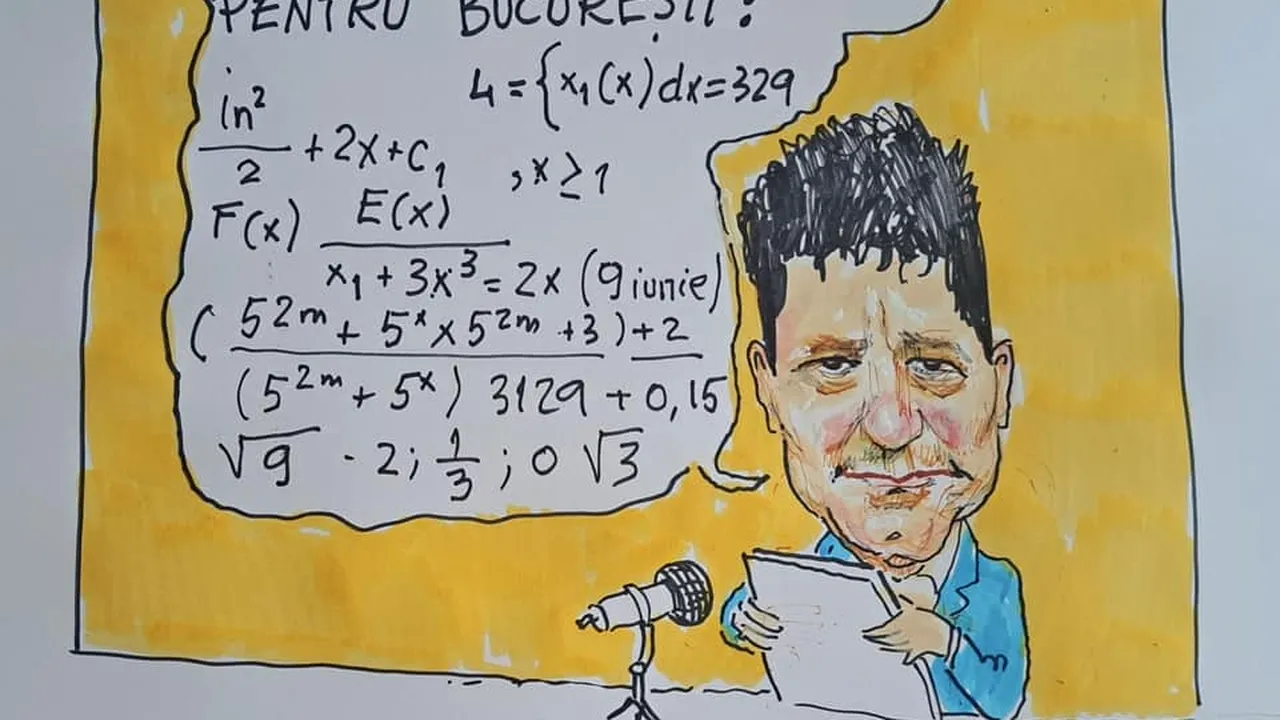 PENTRU BUCUREȘTI:
4 = {x₁(x)dx=329
in²/2 + 2x + c₁ , x ≥ 1
F(x) E(x)/x₁ + 3x³ = 2x (9 iunie)
(5²ᵐ + 5ˣ x 5²ᵐ + 3) + 2
(5²ᵐ + 5ˣ) 3129 + 0,15
√9 - 2; 1/3; 0 √3